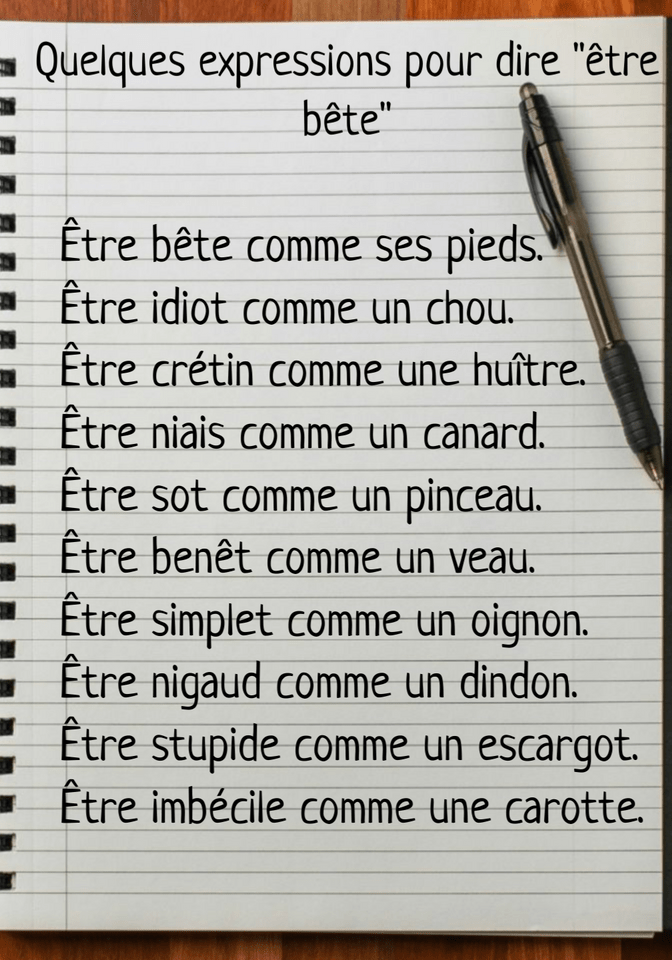 Quelques expressions pour dire "être
bête"
Être bête comme ses pieds.
Être idiot comme un chou.
Être crétin comme une huître.
Être niais comme un canard.
Être sot comme un pinceau.
Être benêt comme un veau.
Être simplet comme un oignon.
Être nigaud comme un dindon.
Être stupide comme un escargot.
Être imbécile comme une carotte.